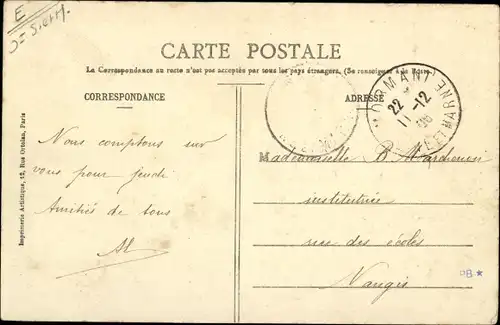 E
CARTE POSTALE
La Correspondance au recto n'est pas acceptée par tous les pays étrangers. (Se renseigner à la Poste)
CORRESPONDANCE
ADRESSE
MORMANT
22
11-12
06
ET MARNE
Nous comptons sur
vous pour jeudi
Amitiés de tous
Al
Mademoiselle B.
institutrice
rue des écoles
Nangis
Imprimerie Artistique, 12, Rue Ortolan, Paris
PB *